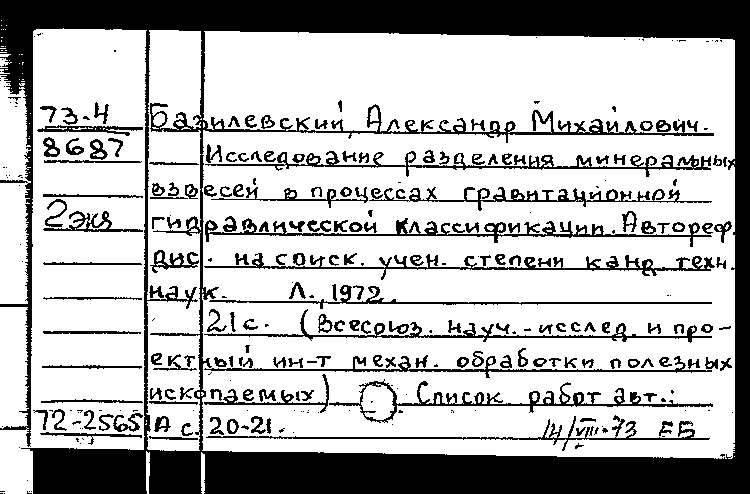 73-4 Базилевский, Александр Михайлович.
8687 Исследование разделения минеральных
взвесей в процессах гравитационной
2 экз гидравлической классификации. Автореф.
дис. на соиск. учен. степени канд. техн.
наук. Л., 1972.
21 с. (Всесоюз. науч.-исслед. и про-
ектный ин-т механ. обработки полезных
ископаемых) Список работ авт.:
72-25651А с. 20-21. 14/VIII-73 ЕБ